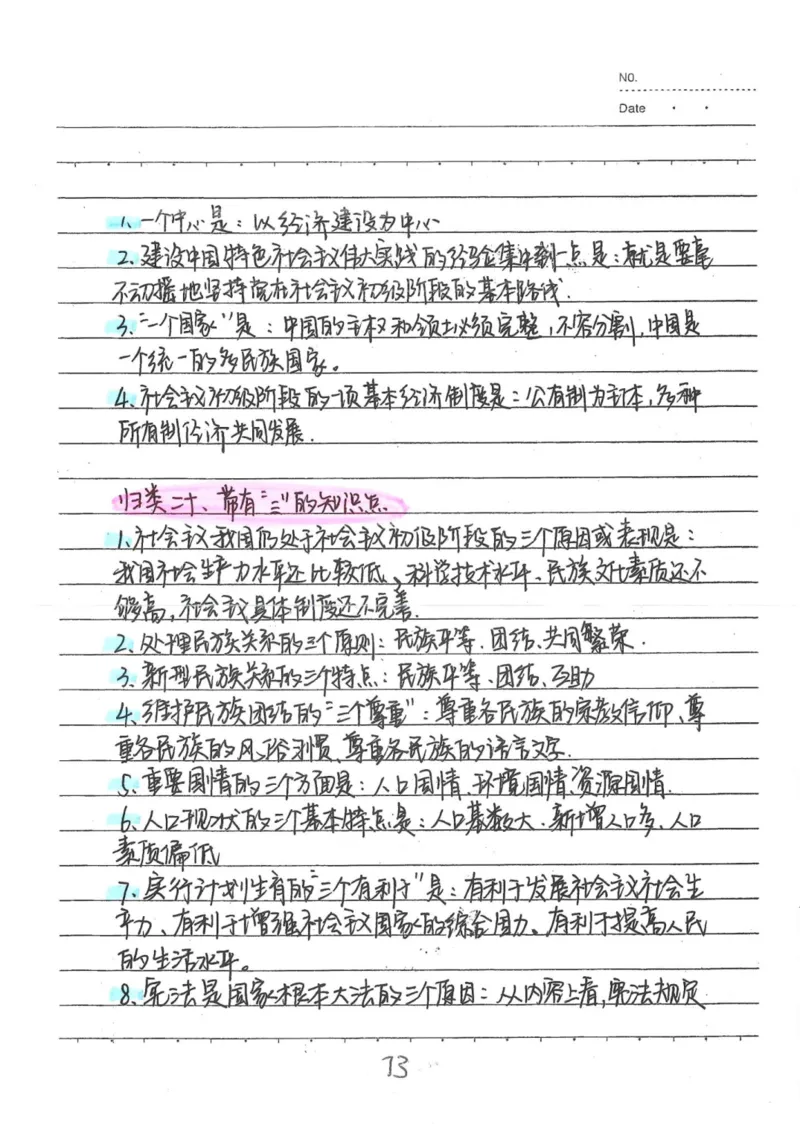 NO.
Date
1、一个中心是：以经济建设为中心
2、建设中国特色社会主义伟大实践的经验集中到一点是：就是要毫
不动摇地坚持党在社会主义初级阶段的基本路线.
3、“一个国家”是：中国的主权和领土必须完整，不容分割，中国是
一个统一的多民族国家。
4、社会主义初级阶段的一项基本经济制度是：公有制为主体，多种
所有制经济共同发展.
归类二十、带有“三”的知识点
1、社会主义我国仍处于社会主义初级阶段的三个原因或表现是：
我国社会生产力水平还比较低、科学技术水平、民族文化素质还不
够高，社会主义具体制度还不完善.
2、处理民族关系的三个原则：民族平等、团结、共同繁荣.
3、新型民族关系的三个特点：民族平等、团结、互助
4、维护民族团结的“三个尊重”：尊重各民族的宗教信仰、尊
重各民族的风俗习惯、尊重各民族的语言文字.
5、重要国情的三个方面是：人口国情、环境国情、资源国情.
6、人口现状的三个基本特点是：人口基数大、新增人口多、人口
素质偏低
7、实行计划生育的“三个有利于”是：有利于发展社会主义社会生
产力、有利于增强社会主义国家的综合国力、有利于提高人民
的生活水平。
8、宪法是国家根本大法的三个原因：从内容上看，宪法规定
73